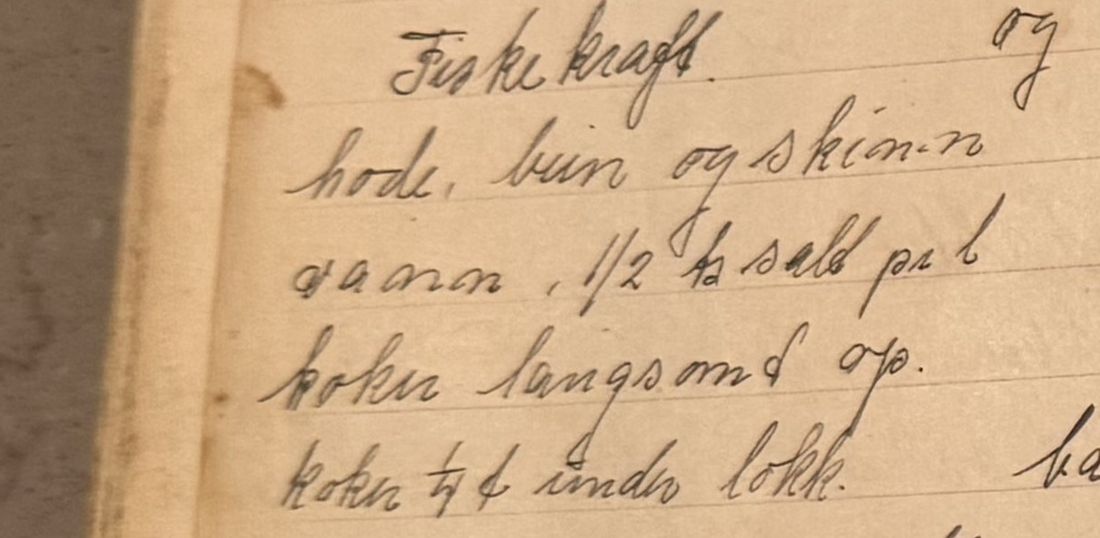 Fiskekraft. og
hode, bein og skinn
vann, 1/2 ts salt pr l
koker langsomt op.
koker t under lokk.